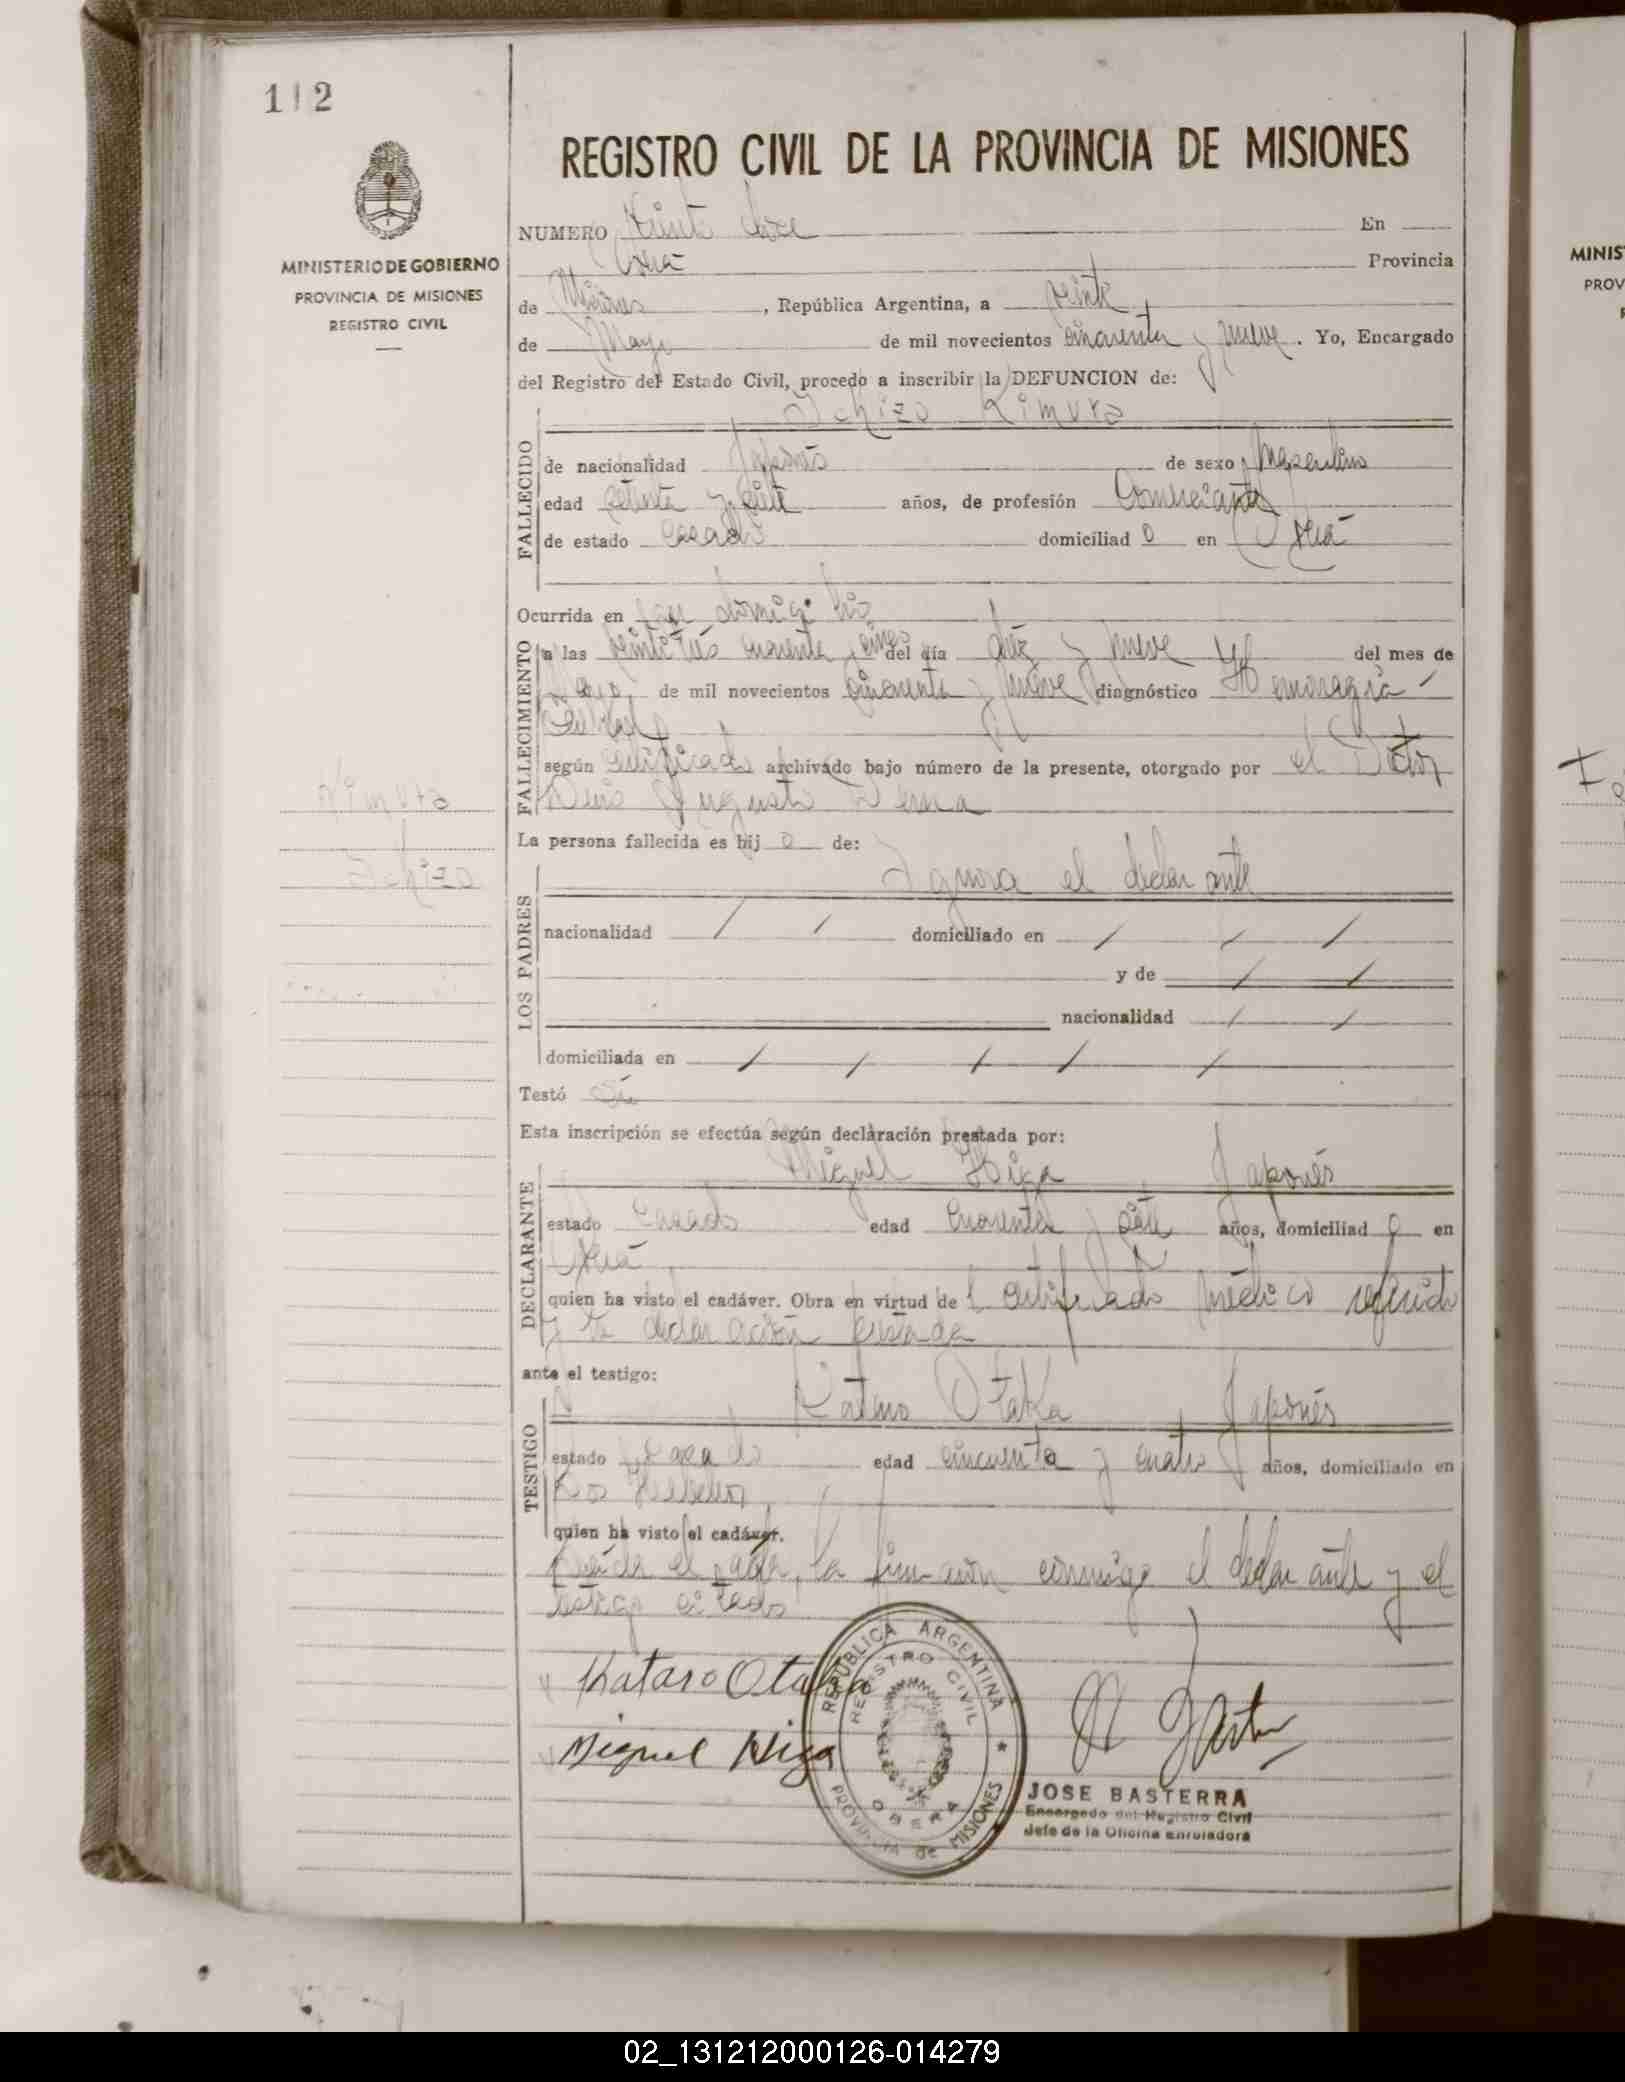 112
REGISTRO CIVIL DE LA PROVINCIA DE MISIONES
MINISTERIO DE GOBIERNO
PROVINCIA DE MISIONES
REGISTRO CIVIL
NUMERO Ciento doce En
Oberá Provincia
de Misiones, República Argentina, a veinte
de Mayo de mil novecientos cincuenta y nueve. Yo, Encargado
del Registro del Estado Civil, procedo a inscribir la DEFUNCION de:
Kimura
FALLECIDO
de nacionalidad Japonés de sexo Masculino
edad setenta y siete años, de profesión Comerciante
de estado casado domiciliado en Oberá
Ocurrida en su domicilio
FALLECIMIENTO
a las veintitrés cuarenta y cinco del día diez y nueve del mes de
Mayo de mil novecientos cincuenta y nueve diagnóstico Hemoragia
Cerebral
según certificado archivado bajo número de la presente, otorgado por el Doctor
Augusto
La persona fallecida es hijo de:
LOS PADRES
Ignora el declarante
nacionalidad / / domiciliado en / / /
y de / /
nacionalidad / /
domiciliada en / / / / /
Testó
Esta inscripción se efectúa según declaración prestada por:
DECLARANTE
Miguel Higa, Japonés
estado casado edad cuarenta y siete años, domiciliado en
Oberá
quien ha visto el cadáver. Obra en virtud del certificado médico referido
y la declaración prestada
ante el testigo:
TESTIGO
Otaka, Japonés
estado casado edad cincuenta y cuatro años, domiciliado en
Los Helechos,
quien ha visto el cadáver.
Leída el acta, la firmaron conmigo el declarante y el
testigo citado
Kataro Otaka
Miguel Higa
REPUBLICA ARGENTINA
REGISTRO CIVIL
OBERA
PROVINCIA de MISIONES
JOSE BASTERRA
Encargado del Registro Civil
Jefe de la Oficina Enroladora
Kimura
MINIS
PROV
02_131212000126-014279